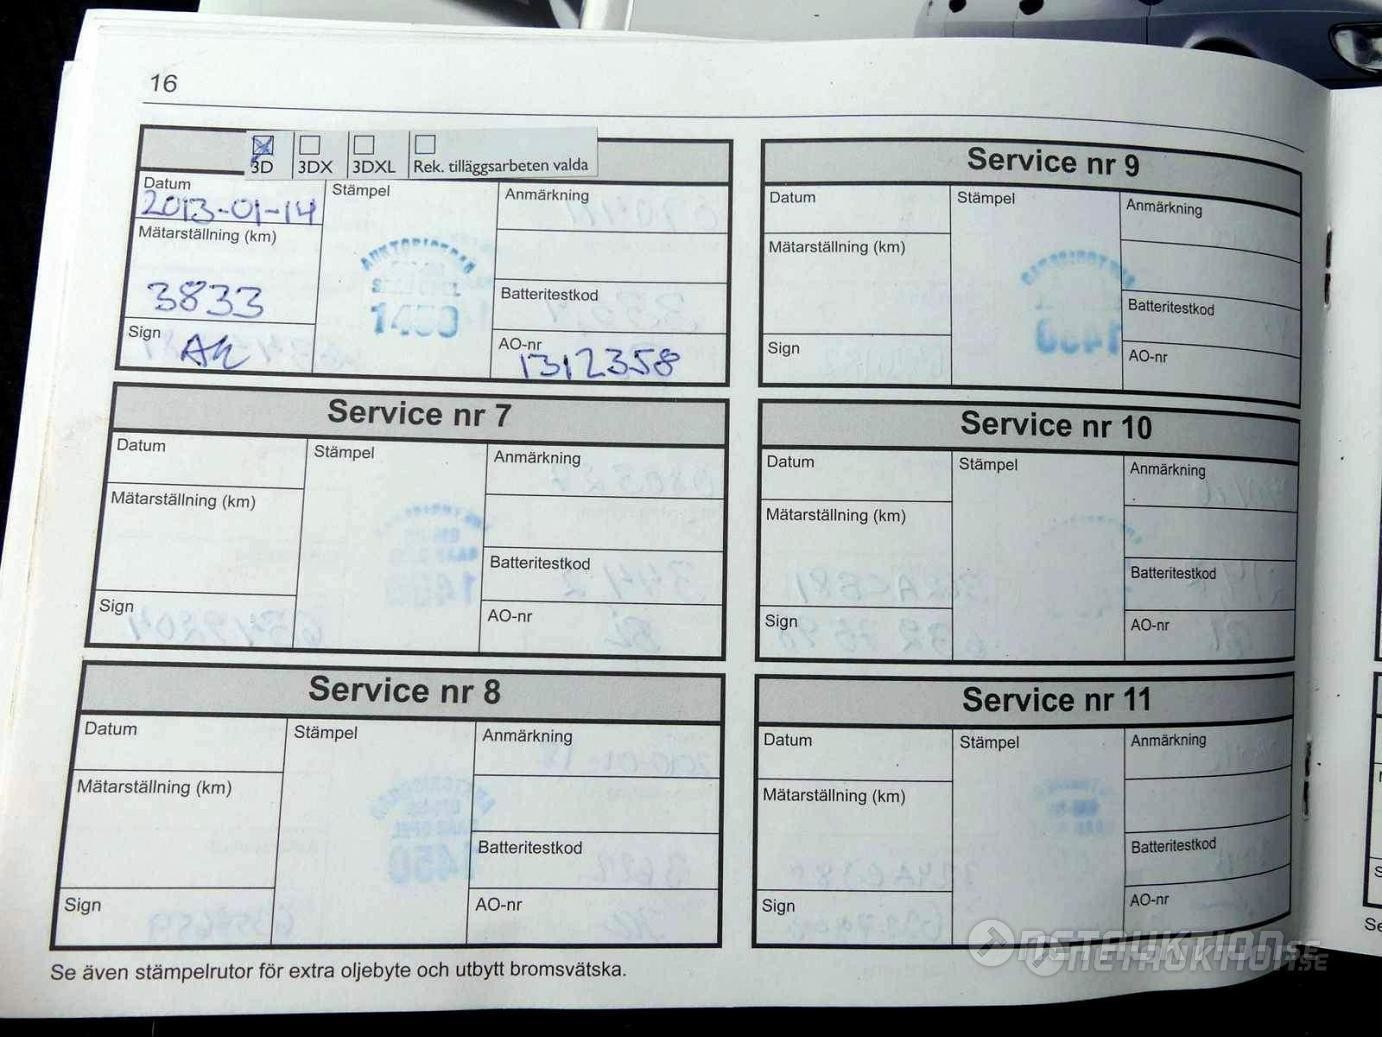 16
3D 3DX 3DXL Rek. tilläggsarbeten valda
Datum
2013-01-14
Stämpel
Anmärkning
Mätarställning (km)
3833
AUKTORISERAD
1450
Batteritestkod
Sign
AO-nr
1312358
Service nr 7
Datum
Stämpel
Anmärkning
Mätarställning (km)
Batteritestkod
Sign
AO-nr
Service nr 8
Datum
Stämpel
Anmärkning
Mätarställning (km)
Batteritestkod
Sign
AO-nr
Service nr 9
Datum
Stämpel
Anmärkning
Mätarställning (km)
Batteritestkod
Sign
AO-nr
Service nr 10
Datum
Stämpel
Anmärkning
Mätarställning (km)
Batteritestkod
Sign
AO-nr
Service nr 11
Datum
Stämpel
Anmärkning
Mätarställning (km)
Batteritestkod
Sign
AO-nr
Se även stämpelrutor för extra oljebyte och utbytt bromsvätska.
NETAUKTION.SE